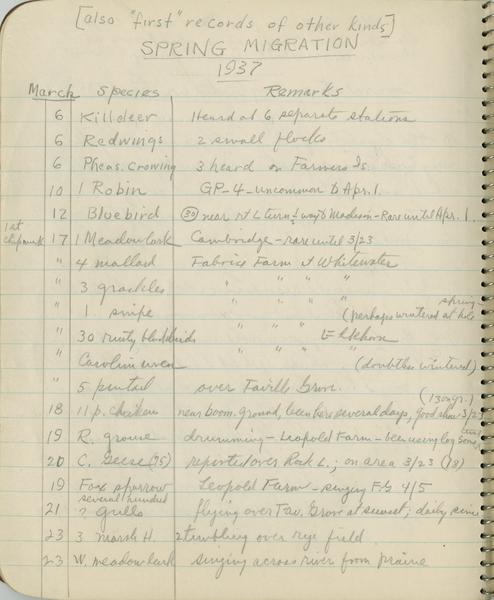 [also "first" records of other kinds]
SPRING MIGRATION
1937
March Species Remarks
6 Killdeer Heard at 6 separate stations
6 Redwings 2 small flocks
6 Pheas. Crowing 3 heard on Farmers Is.
10 1 Robin GP-4-uncommon to Apr. 1.
12 Bluebird near Madison-Rare until Apr. 1.
1st chipmunk 17 1 Meadowlark Cambridge-rare until 3/23
" 4 mallard Farm at Whitewater
" 3 grackles " " " "
" 1 snipe " " " " (perhaps wintered at spring-hole
" 30 rusty blackbirds " " " Elkhorn
" Carolin wren " " " (doubtless wintered)
" 5 pintail over Faville Grove.
18 11 p. chickens near boom. ground, been here several days, good show 3/23 (130 gr.)
19 R. grouse drumming-Leopold Farm-been using log some time
20 C. Geese (75) reported over Rock L.; on area 3/23 (18)
19 Fox sparrow Leopold Farm-singing F.G 4/5
21 several hundred ? gulls flying over Fav. Grove at sunset; daily since
23 3 marsh H. tumbling over rye field
23 W. meadowlark singing across river from prairie